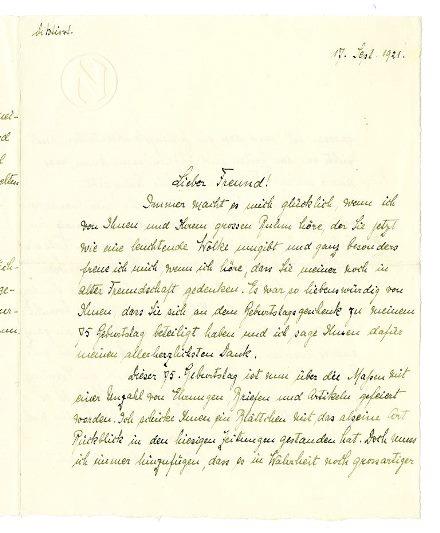 17. Sept. 1921.
Lieber Freund!
Immer macht es mich glücklich wenn ich
von Ihnen und Ihrem grossen Ruhm höre, der Sie jetzt
wie eine leuchtende Wolke umgibt und ganz besonders
freue ich mich wenn ich höre, dass Sie meiner noch in
alter Freundschaft gedenken. Es war so liebenswürdig von
Ihnen dass Sie sich an dem Geburtstagsgeschenk zu meinem
75 Geburtstag beteiligt haben und ich sage Ihnen dafür
meinen allerherzlichsten Dank.
Dieser 75. Geburtstag ist nun über die Massen mit
einer Unzahl von Ehrungen, Briefen und Artikeln gefeiert
worden. Ich schicke Ihnen ein Blättchen mit, das als eine Art
Rückblick in den hiesigen Zeitungen gestanden hat. Doch muss
ich immer hinzufügen, dass es in Wahrheit noch grossartiger